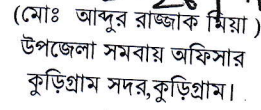 (মোঃ আব্দুর রাজ্জাক মিয়া)
উপজেলা সমবায় অফিসার
কুড়িগ্রাম সদর,কুড়িগ্রাম।